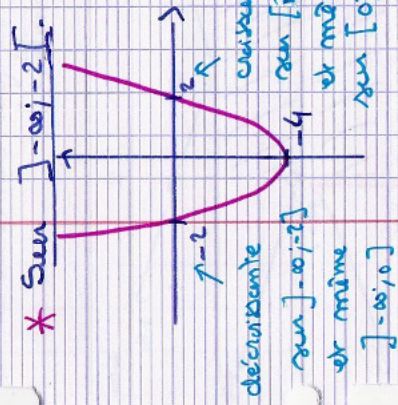 * Sur ]-∞; -2[.
-2
2
-4
décroissante
sur ]-∞; -2]
et même
]-∞; 0]
sur [
et mê
sur [0